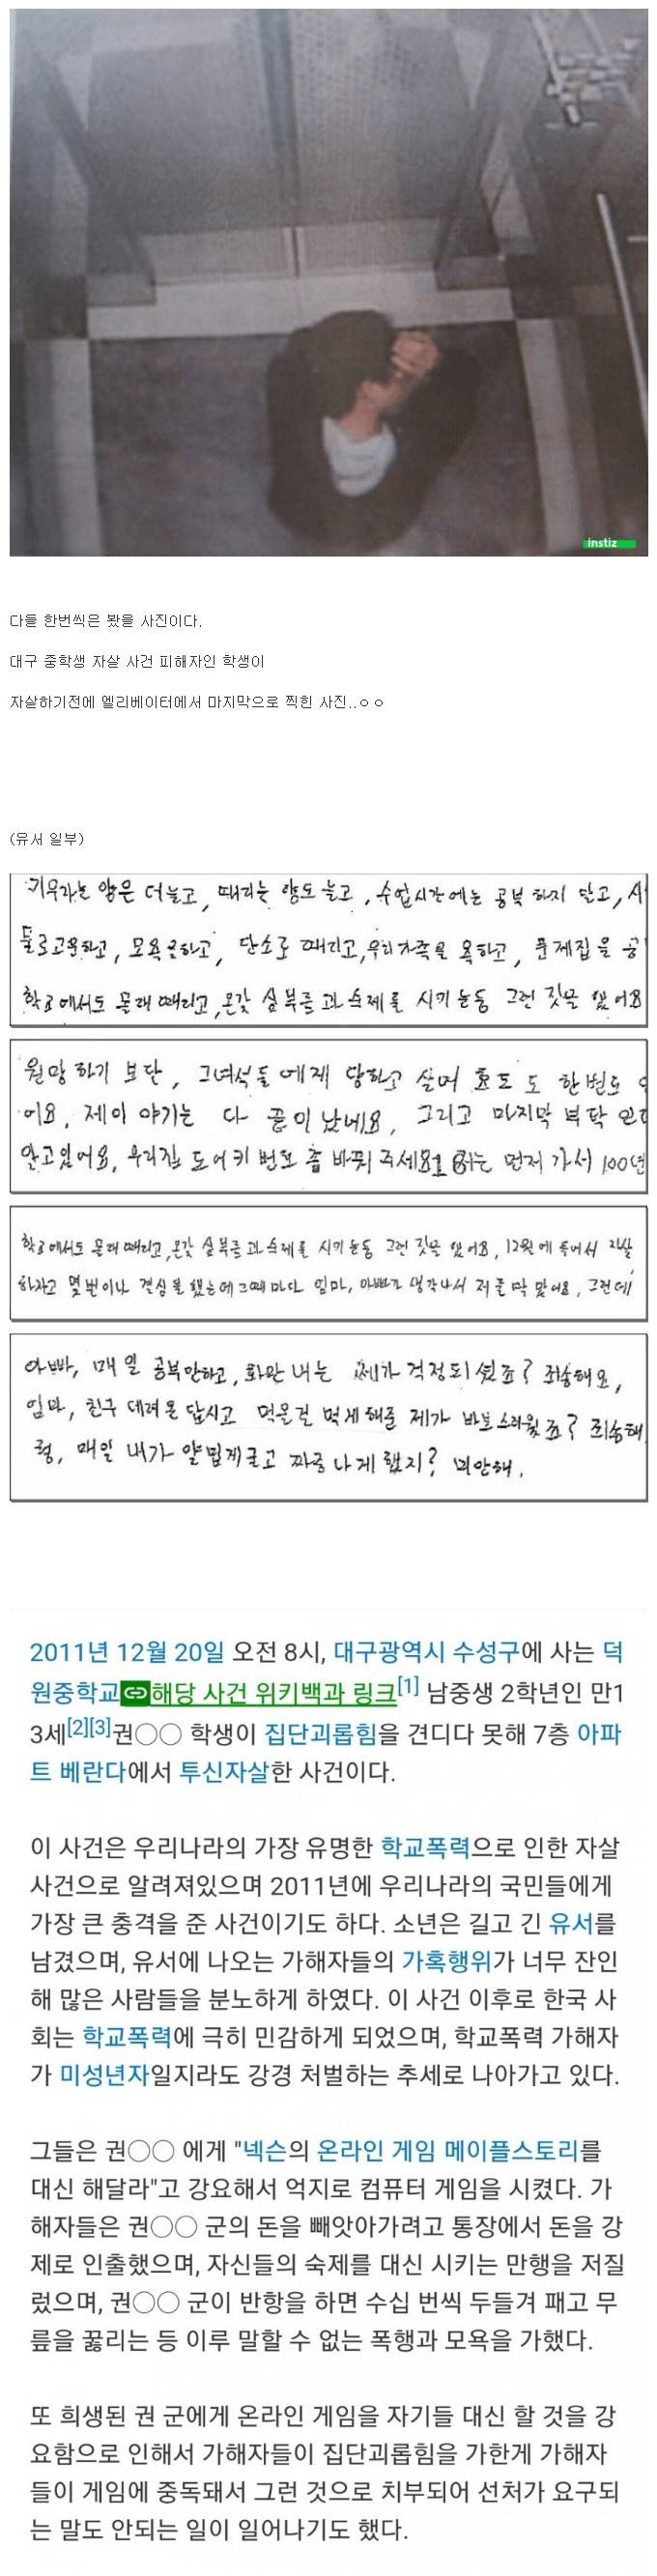 instiz
다들 한번씩은 봤을 사진이다.
대구 중학생 자살 사건 피해자인 학생이
자살하기전에 엘리베이터에서 마지막으로 찍힌 사진..ㅇㅇ
(유서 일부)
키우라는 양은 더 늘고, 때리는 양도 늘고, 수업시간에는 공부하지 말고,
물로 고문하고, 모욕을 하고, 단소로 때리고, 우리가족을 욕하고, 문제집을 공
학교에서도 몰래 때리고, 온갖 심부름과 숙제를 시키는등 그런 짓을 했어요
원망하기 보단, 그녀석들에게 당하고 살며 효도도 한번도
어요, 제 이야기는 다 끝이 났네요, 그리고 마지막 부탁인데
알고있어요, 우리집 도어키 번호 좀 바꿔주세요. 저는 먼저 가서 100년
학교에서도 몰래 때리고, 온갖 심부름과 숙제를 시키는등 그런 짓을 했어요, 12월에 들어서 자살
하자고 몇번이나 결심을 했는데 그때마다 엄마, 아빠가 생각나서 저를 막았어요, 그런데
아빠, 매일 공부안하고, 화만 내는 제가 걱정되셨죠? 죄송해요,
엄마, 친구 데려온답시고 먹을걸 먹게해준 제가 바보스러웠죠? 죄송해
형, 매일 내가 얄밉게굴고 짜증나게 했지? 미안해.
2011년 12월 20일 오전 8시, 대구광역시 수성구에 사는 덕
원중학교해당 사건 위키백과 링크[1] 남중생 2학년인 만1
3세[2][3]권○○ 학생이 집단괴롭힘을 견디다 못해 7층 아파
트 베란다에서 투신자살한 사건이다.
이 사건은 우리나라의 가장 유명한 학교폭력으로 인한 자살
사건으로 알려져있으며 2011년에 우리나라의 국민들에게
가장 큰 충격을 준 사건이기도 하다. 소년은 길고 긴 유서를
남겼으며, 유서에 나오는 가해자들의 가혹행위가 너무 잔인
해 많은 사람들을 분노하게 하였다. 이 사건 이후로 한국 사
회는 학교폭력에 극히 민감하게 되었으며, 학교폭력 가해자
가 미성년자일지라도 강경 처벌하는 추세로 나아가고 있다.
그들은 권○○ 에게 "넥슨의 온라인 게임 메이플스토리를
대신 해달라"고 강요해서 억지로 컴퓨터 게임을 시켰다. 가
해자들은 권○○ 군의 돈을 빼앗아가려고 통장에서 돈을 강
제로 인출했으며, 자신들의 숙제를 대신 시키는 만행을 저질
렀으며, 권○○ 군이 반항을 하면 수십 번씩 두들겨 패고 무
릎을 꿇리는 등 이루 말할 수 없는 폭행과 모욕을 가했다.
또 희생된 권 군에게 온라인 게임을 자기들 대신 할 것을 강
요함으로 인해서 가해자들이 집단괴롭힘을 가한게 가해자
들이 게임에 중독돼서 그런 것으로 치부되어 선처가 요구되
는 말도 안되는 일이 일어나기도 했다.